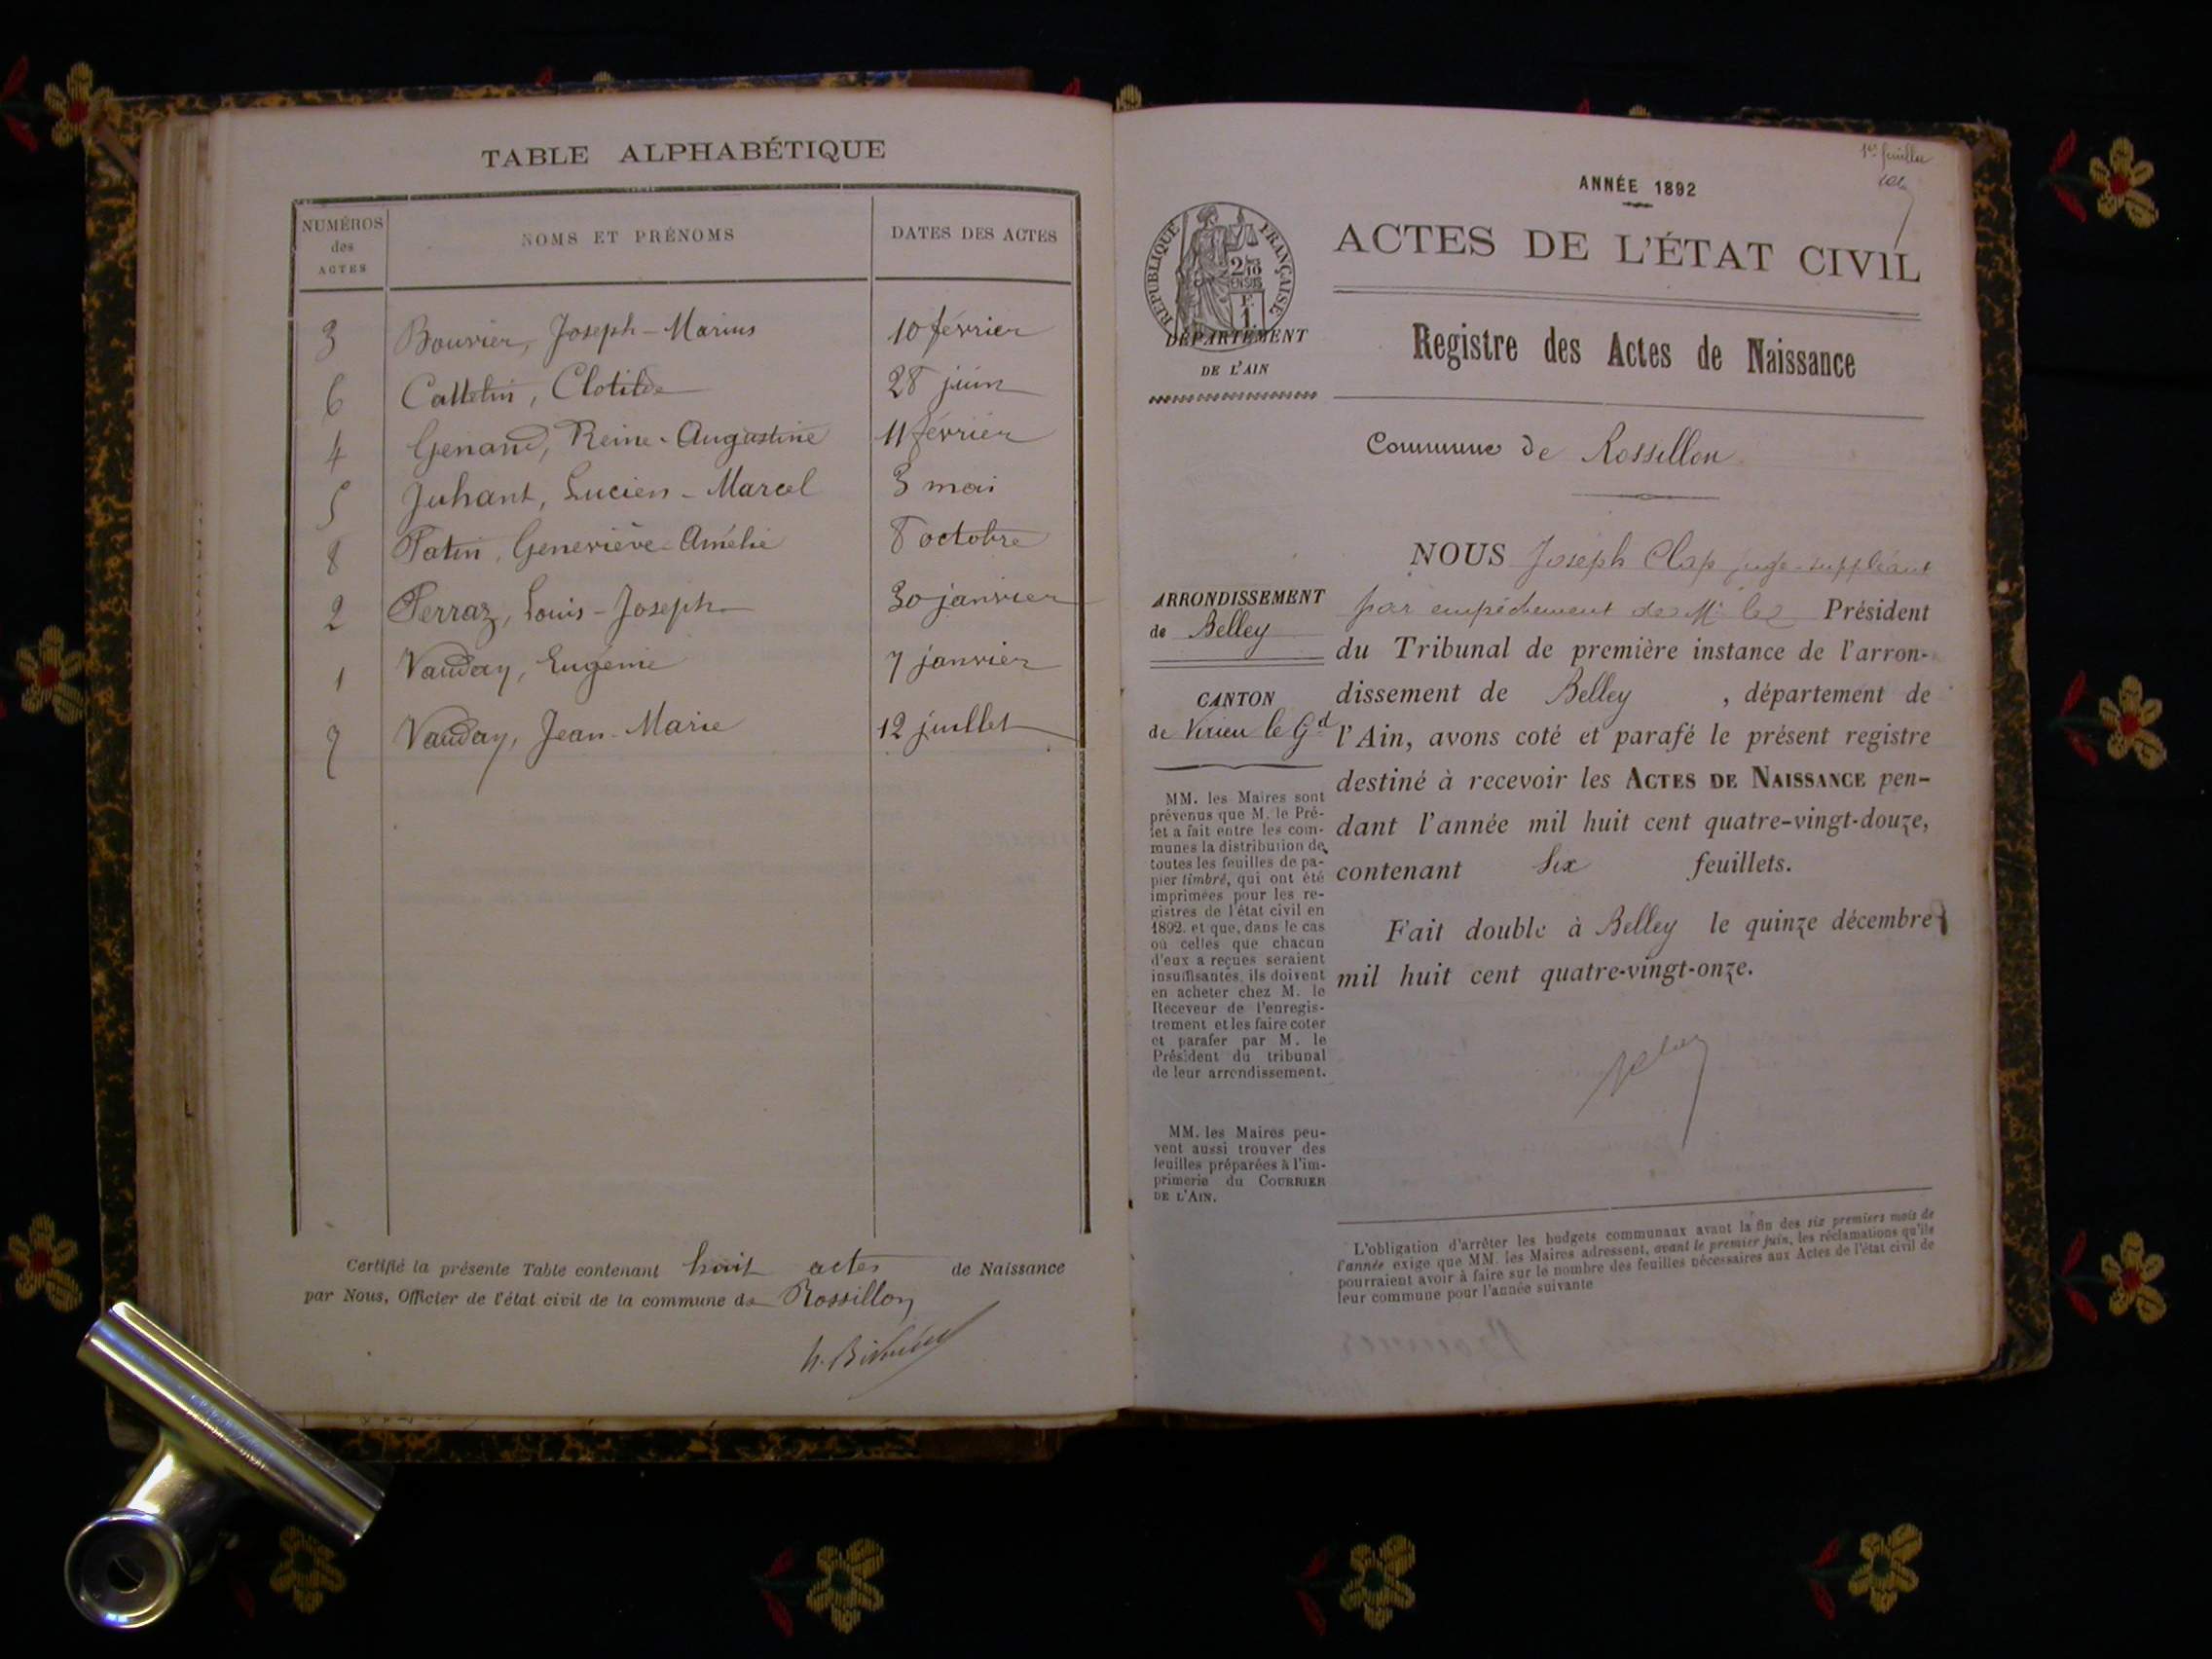 TABLE ALPHABÉTIQUE
NUMÉROS
des
ACTES
NOMS ET PRÉNOMS
DATES DES ACTES
3 Bouvier, Joseph-Marius 10 février
6 Cattelin, Clotilde 28 juin
4 Genand, Reine-Augustine 11 février
5 Juhant, Lucien-Marcel 3 mai
8 Patin, Geneviève-Amélie 8 octobre
2 Perraz, Louis-Joseph 30 janvier
1 Vauday, Eugénie 7 janvier
7 Vauday, Jean-Marie 12 juillet
Certifié la présente Table contenant huit actes de Naissance
par Nous, Officier de l'état civil de la commune de Rossillon
1er feuillet
ANNÉE 1892
ACTES DE L'ÉTAT CIVIL
RÉPUBLIQUE FRANÇAISE
2/10
EN SUS
F.
1
DÉPARTEMENT
DE L'AIN
Registre des Actes de Naissance
Commune de Rossillon
NOUS Joseph Clap juge-suppléant
par empêchement de Mr le Président
du Tribunal de première instance de l'arron-
dissement de Belley, département de
l'Ain, avons coté et parafé le présent registre
destiné à recevoir les ACTES DE NAISSANCE pen-
dant l'année mil huit cent quatre-vingt-douze,
contenant six feuillets.
Fait double à Belley le quinze décembre
mil huit cent quatre-vingt-onze.
ARRONDISSEMENT
de Belley
CANTON
de Virieu le Gd
MM. les Maires sont
prévenus que M. le Pré-
fet a fait entre les com-
munes la distribution de
toutes les feuilles de pa-
pier timbré, qui ont été
imprimées pour les re-
gistres de l'état civil en
1892, et que, dans le cas
où celles que chacun
d'eux a reçues seraient
insuffisantes, ils doivent
en acheter chez M. le
Receveur de l'enregis-
trement et les faire coter
et parafer par M. le
Président du tribunal
de leur arrondissement.
MM. les Maires peu-
vent aussi trouver des
feuilles préparées à l'im-
primerie du COURRIER
DE L'AIN.
L'obligation d'arrêter les budgets communaux avant la fin des six premiers mois de
l'année exige que MM. les Maires adressent, avant le premier juin, les réclamations qu'ils
pourraient avoir à faire sur le nombre des feuilles nécessaires aux Actes de l'état civil de
leur commune pour l'année suivante